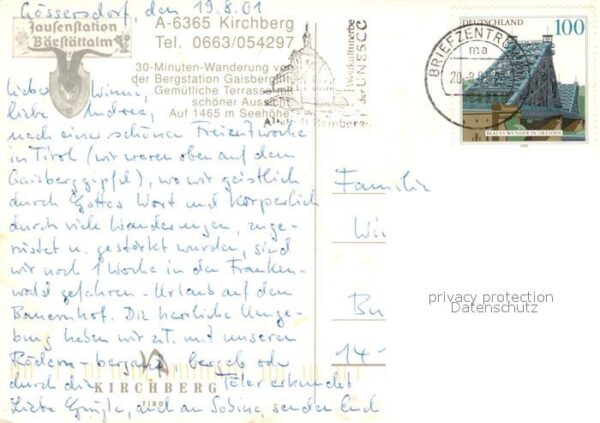 Gössersdorf, den 19.8.01
Jausenstation
Bärstättalm
A-6365 Kirchberg
Tel. 0663/054297
30-Minuten-Wanderung von
der Bergstation Gaisberglift
Gemütliche Terrasse mit
schöner Aussicht
Auf 1465 m Seehöhe
Lieber Winni,
liebe Andrea,
nach einer schönen Freizeitwoche
in Tirol (wir waren oben auf dem
Gaisberggipfel), wo wir geistlich
durch Gottes Wort und körperlich
durch viele Wanderungen, zuge-
rüstet u. gestärkt wurden, sind
wir noch 1 Woche in den Franken-
wald gefahren - Urlaub auf dem
Bauernhof. Die herrliche Umge-
bung haben wir z.T. mit unseren
Rädern - bergauf bergab oder
durch die Täler erkundet
Liebe Grüße, auch an Sabine, senden Euch
KIRCHBERG
TIROL
Weltkulturerbe
der UNESCO
Bamberg
BRIEFZENTRUM
ma
DEUTSCHLAND
100
BLAUES WUNDER IN DRESDEN
2000
Familie
Wi
privacy protection
Datenschutz
14-